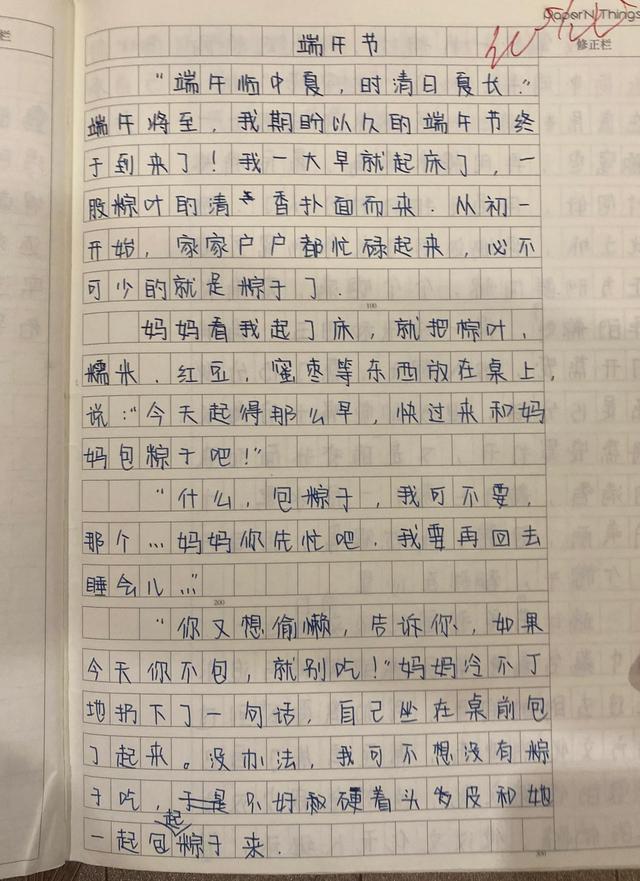 PaperN Things
修正栏
端午节
“端午临中夏，时清日复长。”
端午将至，我期盼以久的端午节终
于到来了！我一大早就起床了，一
股粽叶的清香扑面而来．从初一
开始，家家户户都忙碌起来，必不
可少的就是粽子了．
100
妈妈看我起了床，就把粽叶，
糯米．红豆，蜜枣等东西放在桌上，
说：“今天起得那么早，快过来和妈
妈包粽子吧！”
“什么，包粽子，我可不要，
那个…妈妈你先忙吧．我要再回去
睡会儿…”
200
“你又想偷懒，告诉你、如果
今天你不包，就别吃！”妈妈冷不丁
地扔下了一句话，自己坐在桌前包
了起来。没办法，我可不想没有粽
子吃，于是只好硬着头皮和她
一起包起粽子来．
300